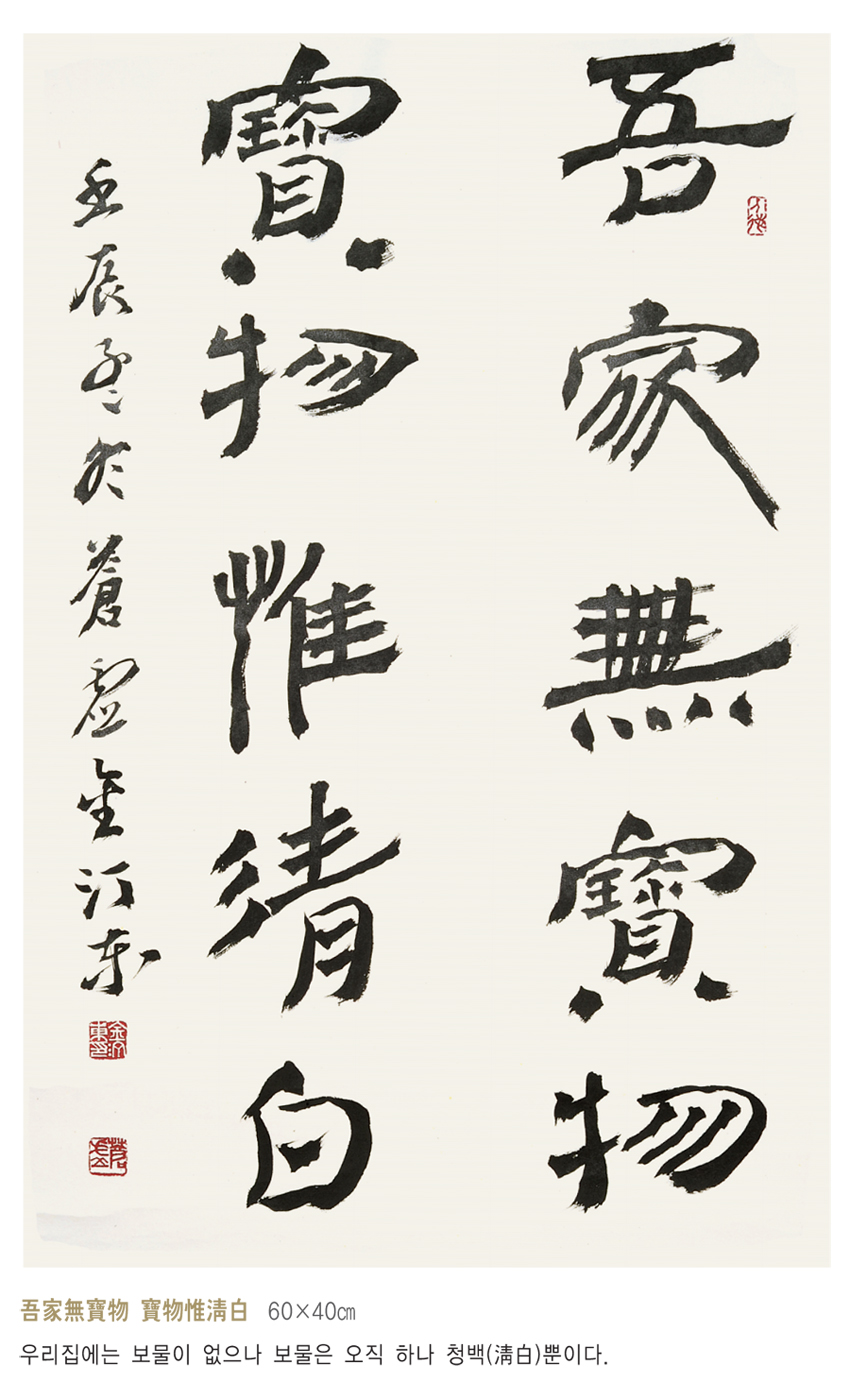 吾家無寶物
寶物惟清白
壬辰冬於蒼虛金汀東
吾家無寶物 寶物惟淸白 60×40㎝
우리집에는 보물이 없으나 보물은 오직 하나 청백(淸白)뿐이다.